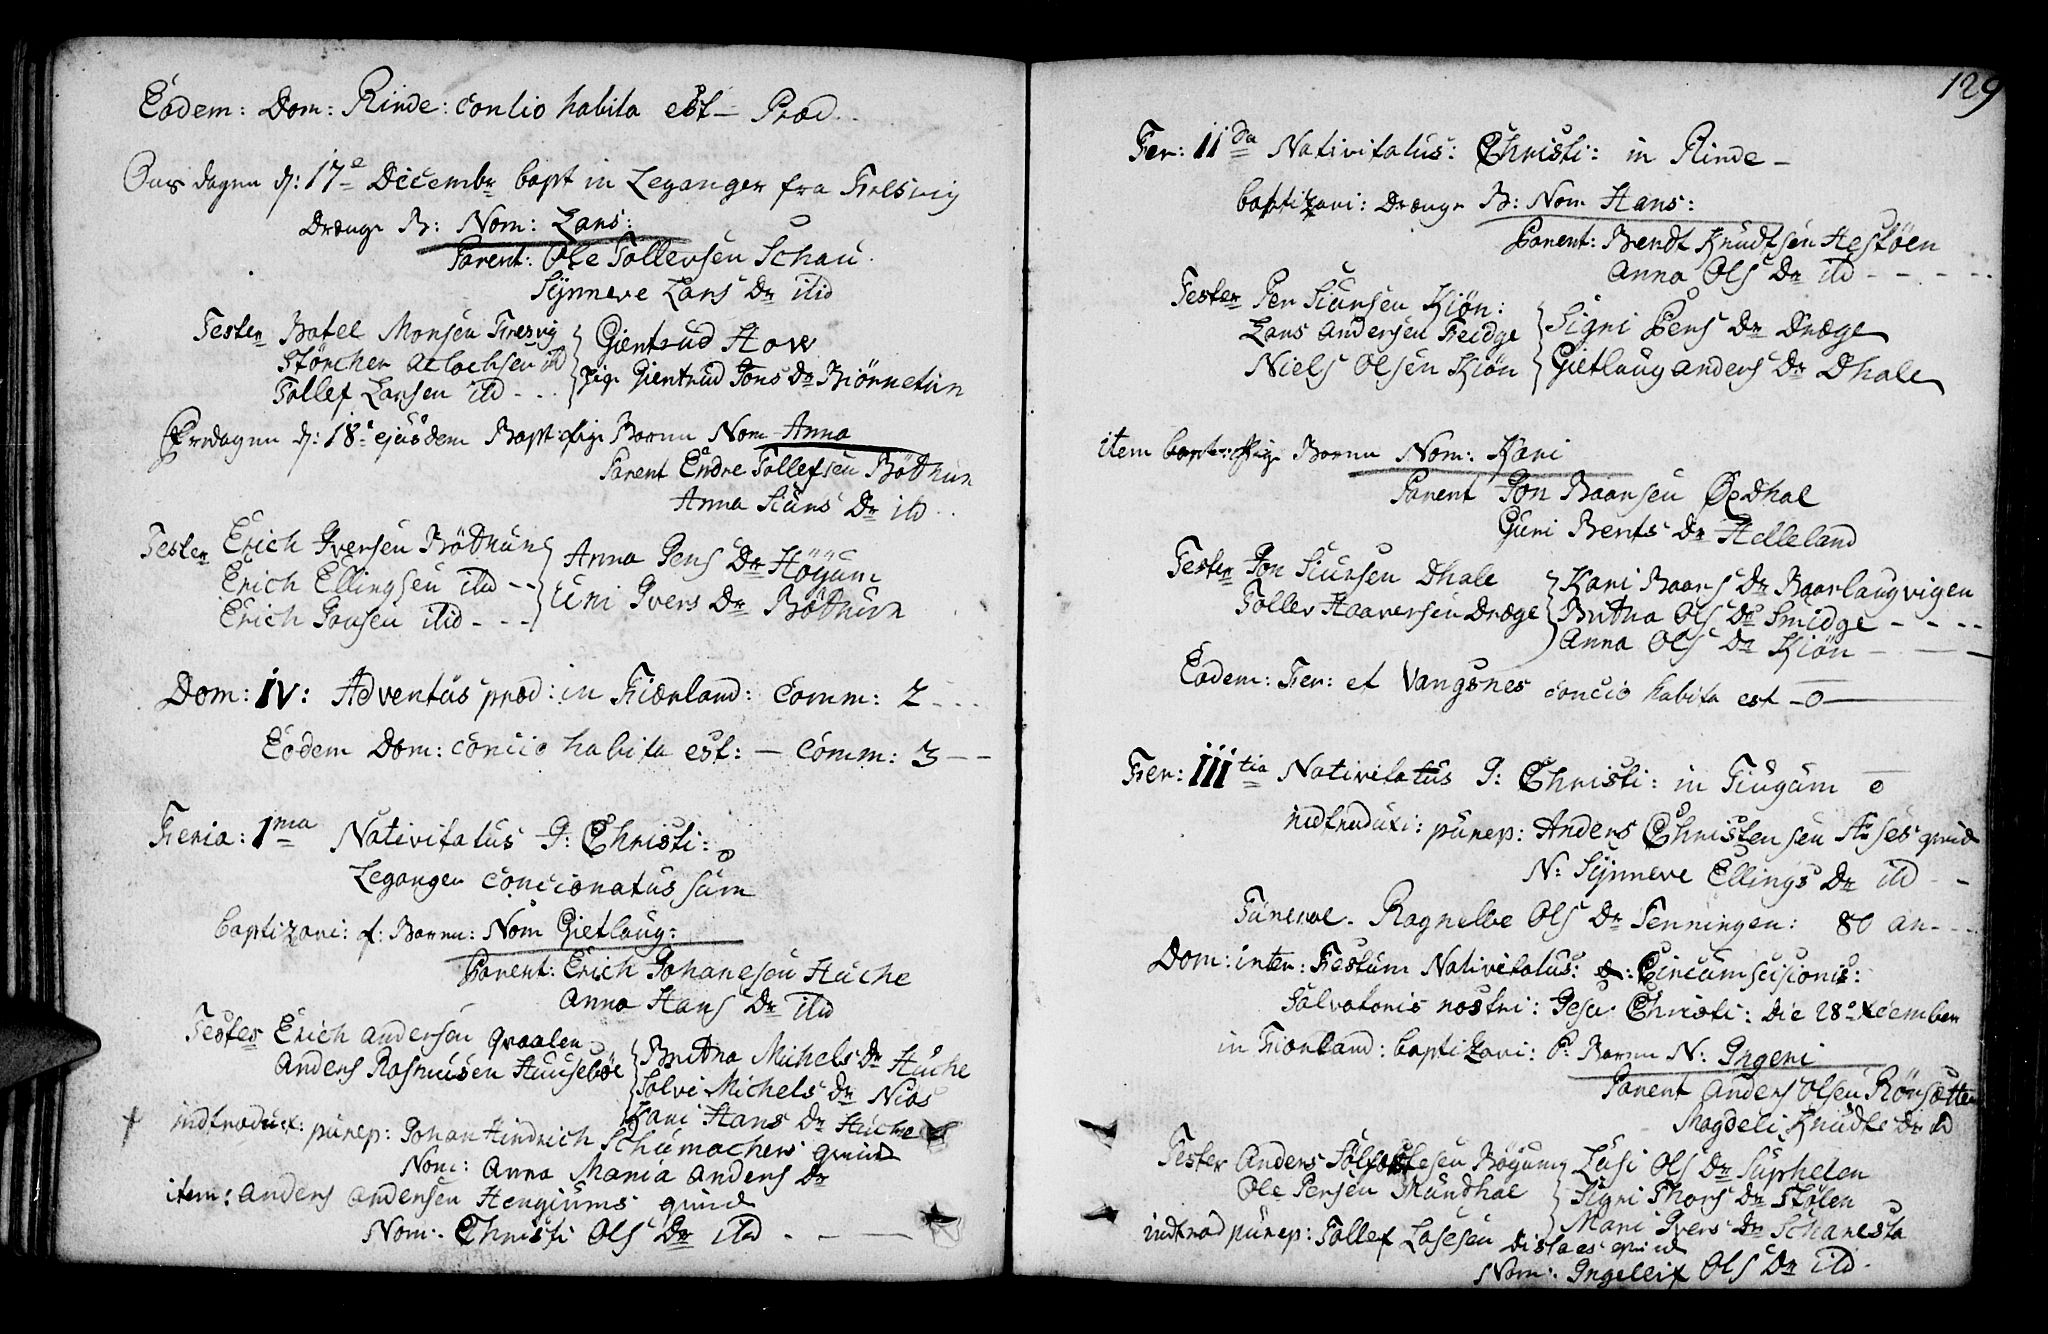 Eodem: Dom: Rinde: concio habita est – Præd..
Ons dagen d: 17e Decembr bapt in Leganger fra Fresvig
Drænge B: Nom: Lars:
Parent: Ole Tollefsen Schau.
Synneve Lars Dr itid
Tester Botel Monsen Fresvig
Størcher Atlachsen id
Tollef Larsen itd - . .
Giertrud Hove
pige Giertrud Jons Dr Biørnetun
dagen d: 18e ejusdem Bapt: pige Barnn Nom Anna
Parent Endre Tollefsen Bøthun
Anna Siurs Dr itd . .
Tester Erich Iversen Bøthun
Erich Ellingsen itid - -
Erich Jonsen itid - - -
Anna Jens Dr Høyum
Uni Ivers Dr Bøthun
Dom: IV: Adventus præd: in Fiærland: Comm: 2 - . .
Eodem Dom: concio habita est: – Comm: 3 – –
Feria: 1ma Nativitatus J: Christi:
Leganger concionatus sum
baptizavi: p: Barnn: Nom Gietlaug:
Parent: Erich Johanesen Huche
Anna Hans Dr itid
Testes Erich Andersen Qvaalen
Anders Rasmusen Huusebøe
Britha Michels Dr Huche
Solvi Michels Dr Nios
Kari Hans Dr Huche
indtroduct: puerp: Johan Hindrich Schumachers qvind
Nom: Anna Maria Anders Dr
item: Anders Andersen Hengiums qvind
Nom: Christi Ols Dr itd . – –
129
Fer: IIda Nativitatus: Christi: in Rinde –
baptizavi: Drænge B: Nom Hans:
Parent: Bendt Knudtsen Hestøen
Anna Ols Dr itd - - - - -
Tester Per Siursen Kiøn:
Lars Andersen Feidge
Niels Olsen Kiøn
Signi Pers Dr Dræge
Gietlaug Anders Dr Dhale
item bapt: pige Barnn Nom: Kari
Parent Jon Baarsen Øedhal
Guri Bents Dr Helleland
Tester Jon Siursen Dhale
Tollev Haaversen Dræge
Kari Baars Dr Baarlaugvigen
Britha Ols Dr Smidge - - - -
Anna Ols Dr Kiøn – – –
Eodem: Fer: et Vangsnes concio habita est –o–
Fer: IIItia Nativitatus J: Christi: in Fiugum o
indtroduxi: puerp: Anders Christensen Asses qvind
N: Synneve Ellings Dr itd - -
Funeral. Ragnelde Ols Dr Tenningen: 80 an- . .
Dom: inter: Festum Nativitatus: &: Circumscisionis:
Salvatoris nostri: Jesu Christi: die 28e December
in Fiorland: baptizavi: P: Barnn N: Ingeri
Parent Anders Olsen Rørsætter
Magdeli Knudts Dr id
Tester Anders Sølfæstesen Bøyum
Ole Persen Mundhal
Lusi Ols Dr Suphelen
Signi Thors Dr Stølen
Mari Ivers Dr Scharesta
indtrod puerp: Tollef Lasesen Distaes qvind
Nom: Ingelleif Ols Dr itd.